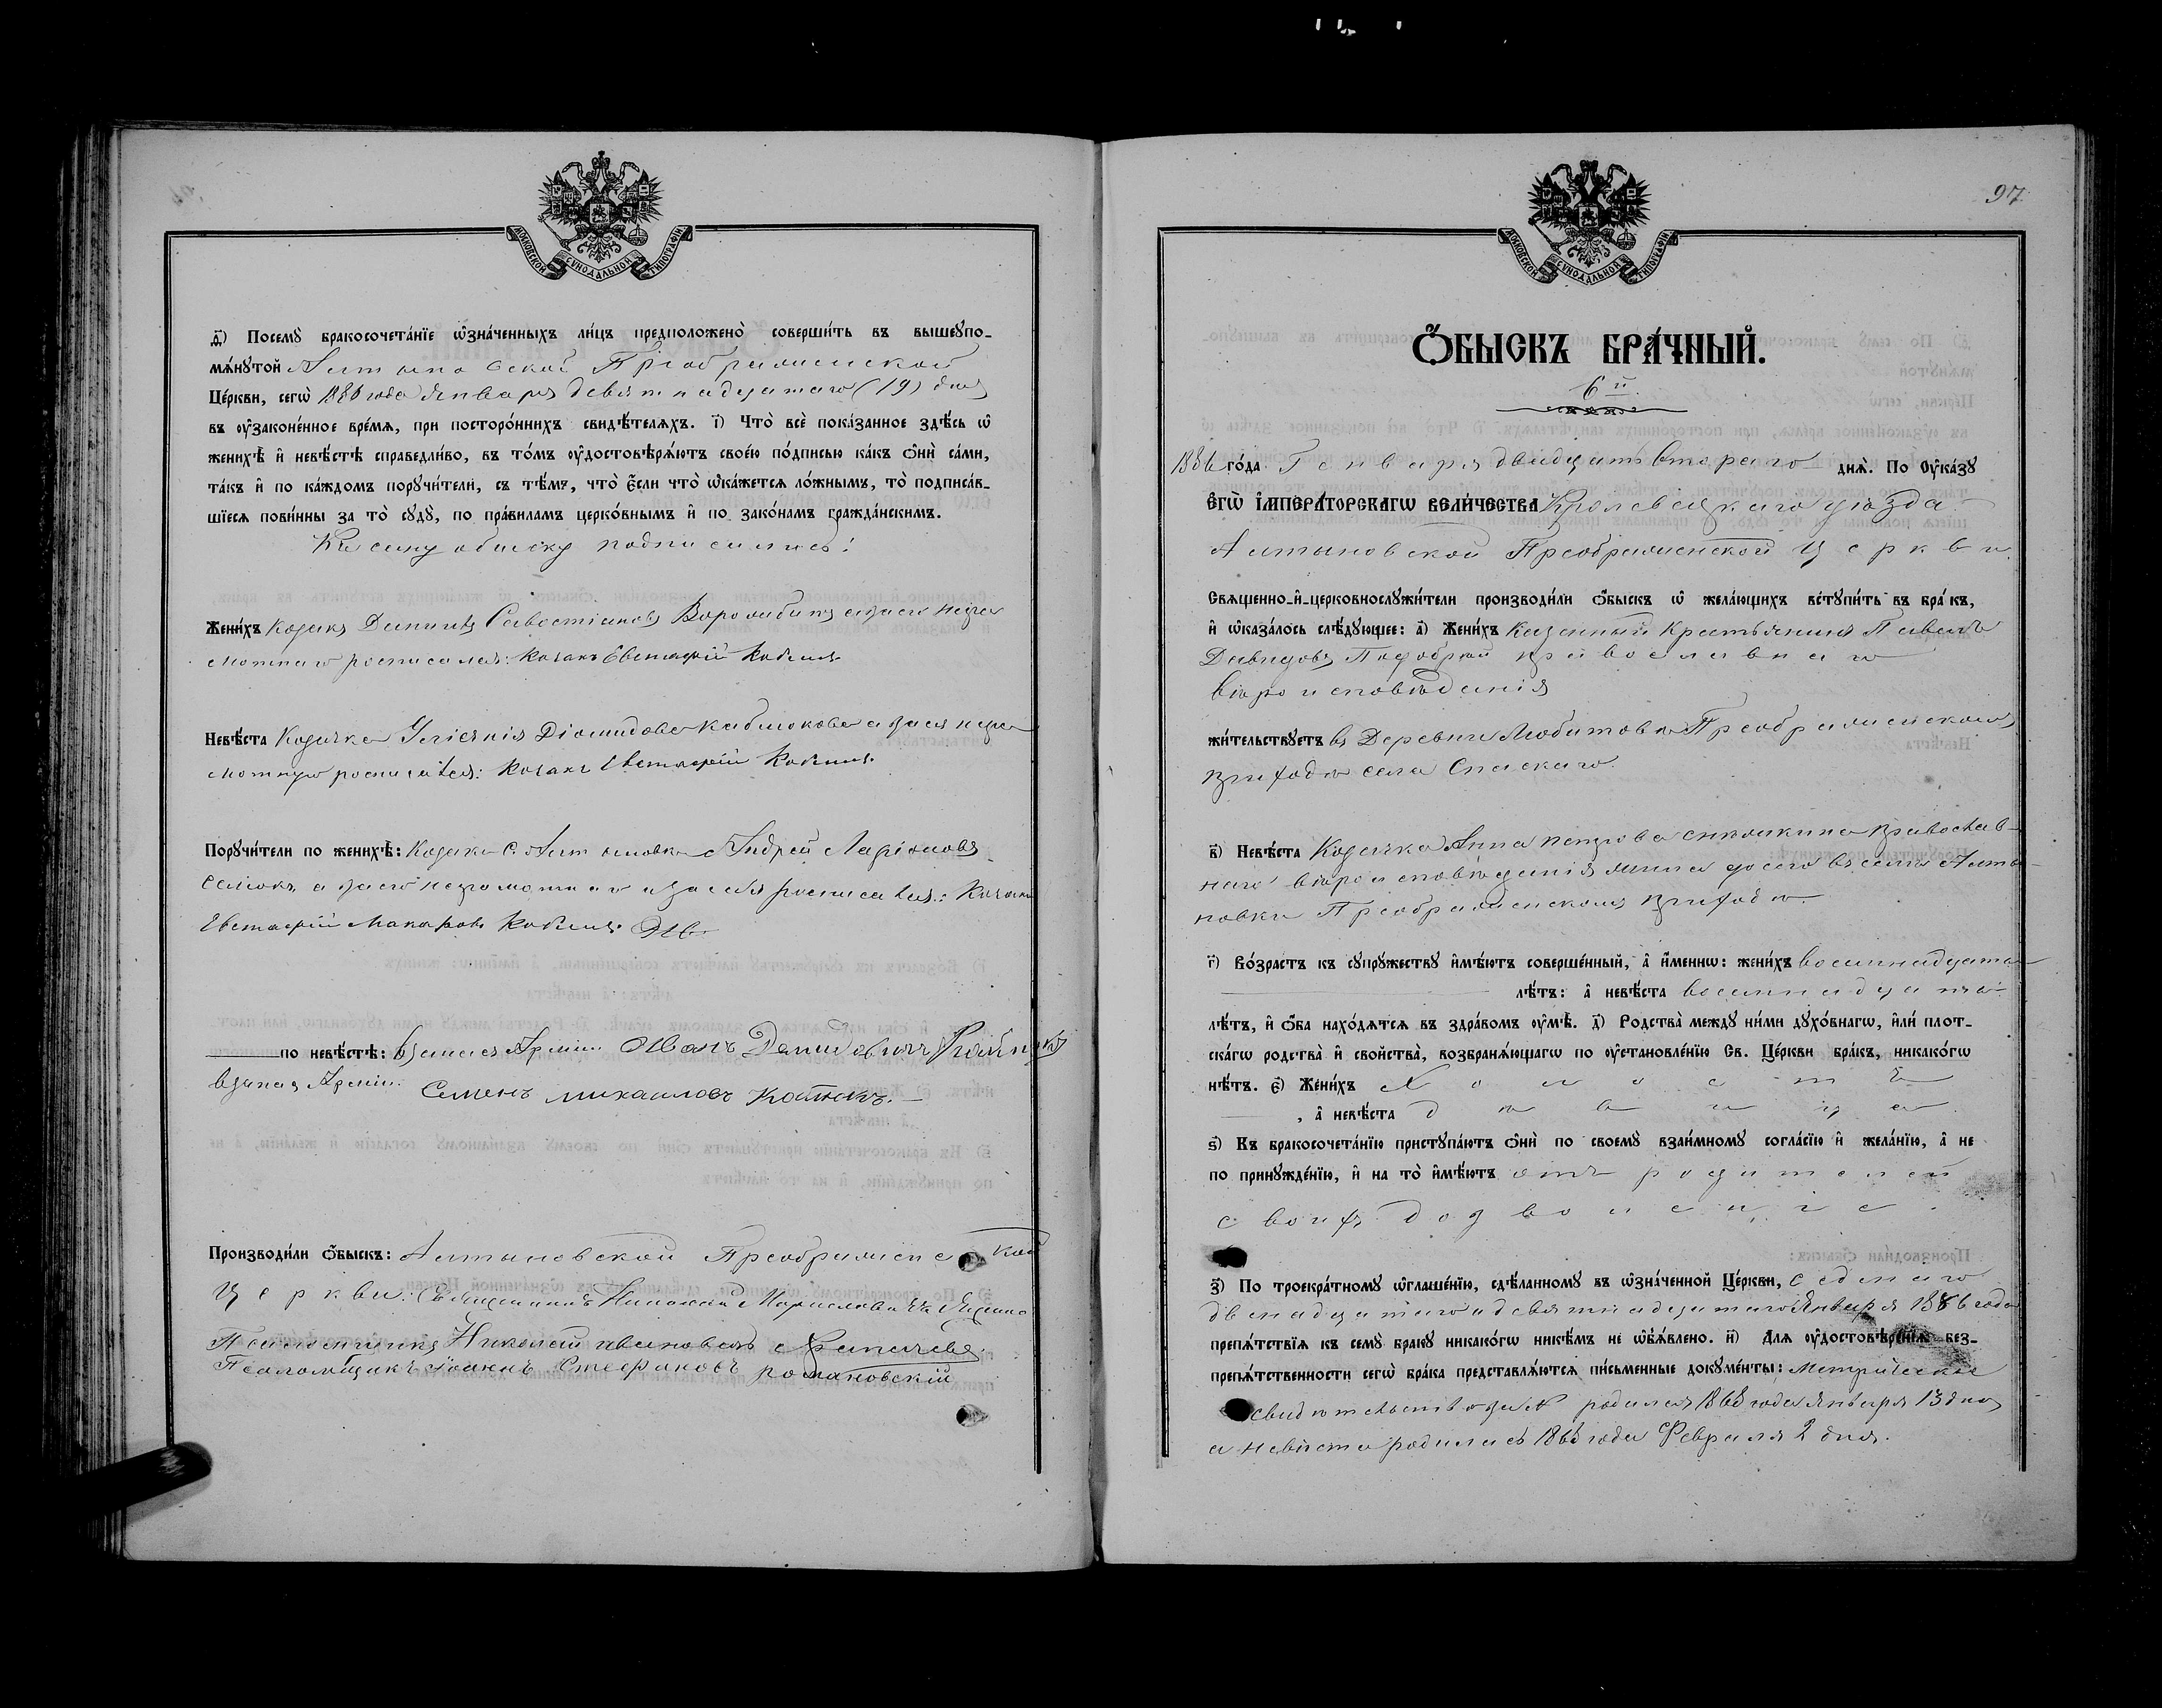 МОСКОВСКОЙ СѴНОДАЛЬНОЙ ТИПОГРАФІИ
д҃) Посемꙋ̀ бракосочета́нїе ѡ҆зна́ченныхъ ли́цъ предположено̀ соверши́ть въ вышеꙋпо-
мѧ́нꙋтой Алтыновской Преображенской
Це́ркви, сегѡ̀ 1886 года Января девятнадцатаго (19) дня
въ ᲂу҆законе́нное вре́мѧ, при посторо́ннихъ свидѣ́телѧхъ. і҃) Что̀ всѐ пока́занное здѣ́сь ѡ҆
женихѣ̀ и҆ невѣ́стѣ справедли́во, въ то́мъ ᲂу҆достовѣрѧ́ютъ свое́ю по́дписью ка́къ ѻ҆нѝ са́ми,
та́къ и҆ по ка́ждомъ порꙋчи́тели, съ тѣ́мъ, что̀ є҆́сли что̀ ѡ҆ка́жетсѧ ло́жнымъ, то̀ подписа́в-
шїесѧ пови́нны за то̀ сꙋдꙋ̀, по пра́виламъ церко́внымъ и҆ по зако́намъ гражда́нскимъ.
Къ сему обыску подписались:
Жени́хъ Козакъ Даниилъ Савостіановъ а за него негра
мотнаго росписался: Козакъ Евстафій Кобецъ
Невѣ́ста Козачка Діомидова а за нея негра
мотную росписался: Козакъ Евстафій Кобецъ
Порꙋчи́тели по женихѣ̀: Козаки С. Алтыновки Андрей Ларіоновъ
а за его неграмотнаго и за себя росписался: Козакъ
Евстафій Макаровъ Кобецъ
по невѣ́стѣ: Иванъ Демидовичъ
Семенъ Михайловъ
Производи́ли ѻ҆́быскъ: Алтыновской Преображенской
Церкви: Священникъ Николай
Псаломщикъ Николай Ивановъ
Псаломщикъ Іоаннъ Стефановъ Романовскій
97
МОСКОВСКОЙ СѴНОДАЛЬНОЙ ТИПОГРАФІИ
Ѻ҆́БЫСКЪ БРА́ЧНЫЙ.
6й
1886 го́да Генваря двадцать втораго днѧ̀. По Оу҆ка́зꙋ
Є҆ГѠ̀ І҆МПЕРА́ТОРСКАГѠ ВЕЛИ́ЧЕСТВА Кролевецкаго уѣзда
Алтыновской Преображенской Церкви
Свѧще́нно-и҆-церковнослꙋжи́тели производи́ли ѻ҆́быскъ ѡ҆ жела́ющихъ встꙋпи́ть въ бра́къ,
и҆ ѡ҆каза́лось слѣ́дꙋющее: а҃) Жени́хъ Казенный Крестьянинъ Павелъ
Давидовъ православнаго
вѣроисповѣданія
жи́тельствꙋетъ въ Деревни Любитовкѣ Преображенскомъ
приходѣ села Спаскаго
в҃) Невѣ́ста Козачка Анна Петрова православ-
наго вѣроисповѣданія въ селѣ Алты-
новки Преображенскомъ приходѣ
г҃) Во́зрастъ къ сꙋпрꙋ́жествꙋ и҆мѣ́ютъ соверше́нный, а҆ и҆́меннѡ: жени́хъ восемнадцать
лѣ́тъ: а҆ невѣ́ста восемнадцать
лѣ́тъ, и҆ ѻ҆́ба нахо́дѧтсѧ въ здра́вомъ ᲂу҆мѣ̀. д҃) Родства̀ междꙋ̀ ни́ми дꙋхо́внагѡ, и҆лѝ плот-
ска́гѡ родства̀ и҆ сво́йства, возбранѧ́ющагѡ по ᲂу҆становле́нїю Св. Це́ркви бра́къ, никако́гѡ
нѣ́тъ. є҃) Жени́хъ Холостъ
, а҆ невѣ́ста дѣвица
ѕ҃) Къ бракосочета́нїю пристꙋпа́ютъ ѻ҆нѝ по своемꙋ̀ взаи́мномꙋ согла́сїю и҆ жела́нїю, а҆ не
по принꙋжде́нїю, и҆ на то̀ и҆мѣ́ютъ отъ родителей
своихъ дозволеніе.
з҃) По троекра́тномꙋ ѡ҆глаше́нїю, сдѣ́ланномꙋ въ ѡ҆зна́ченной Це́ркви, седмаго
двенадцатаго и девятнадцатаго Января 1886 года
препѧ́тствїѧ къ семꙋ̀ бра́кꙋ никако́гѡ никѣ́мъ не ѡ҆б̾ѧ́влено. и҃) Длѧ ᲂу҆достовѣре́нїѧ без-
препѧ́тственности сегѡ̀ бра́ка представлѧ́ютсѧ пи́сьменные докꙋме́нты: Метрическіе
родился 1868 года Января 13 дня
а невѣста родилась 1868 года Февраля 2 дня.